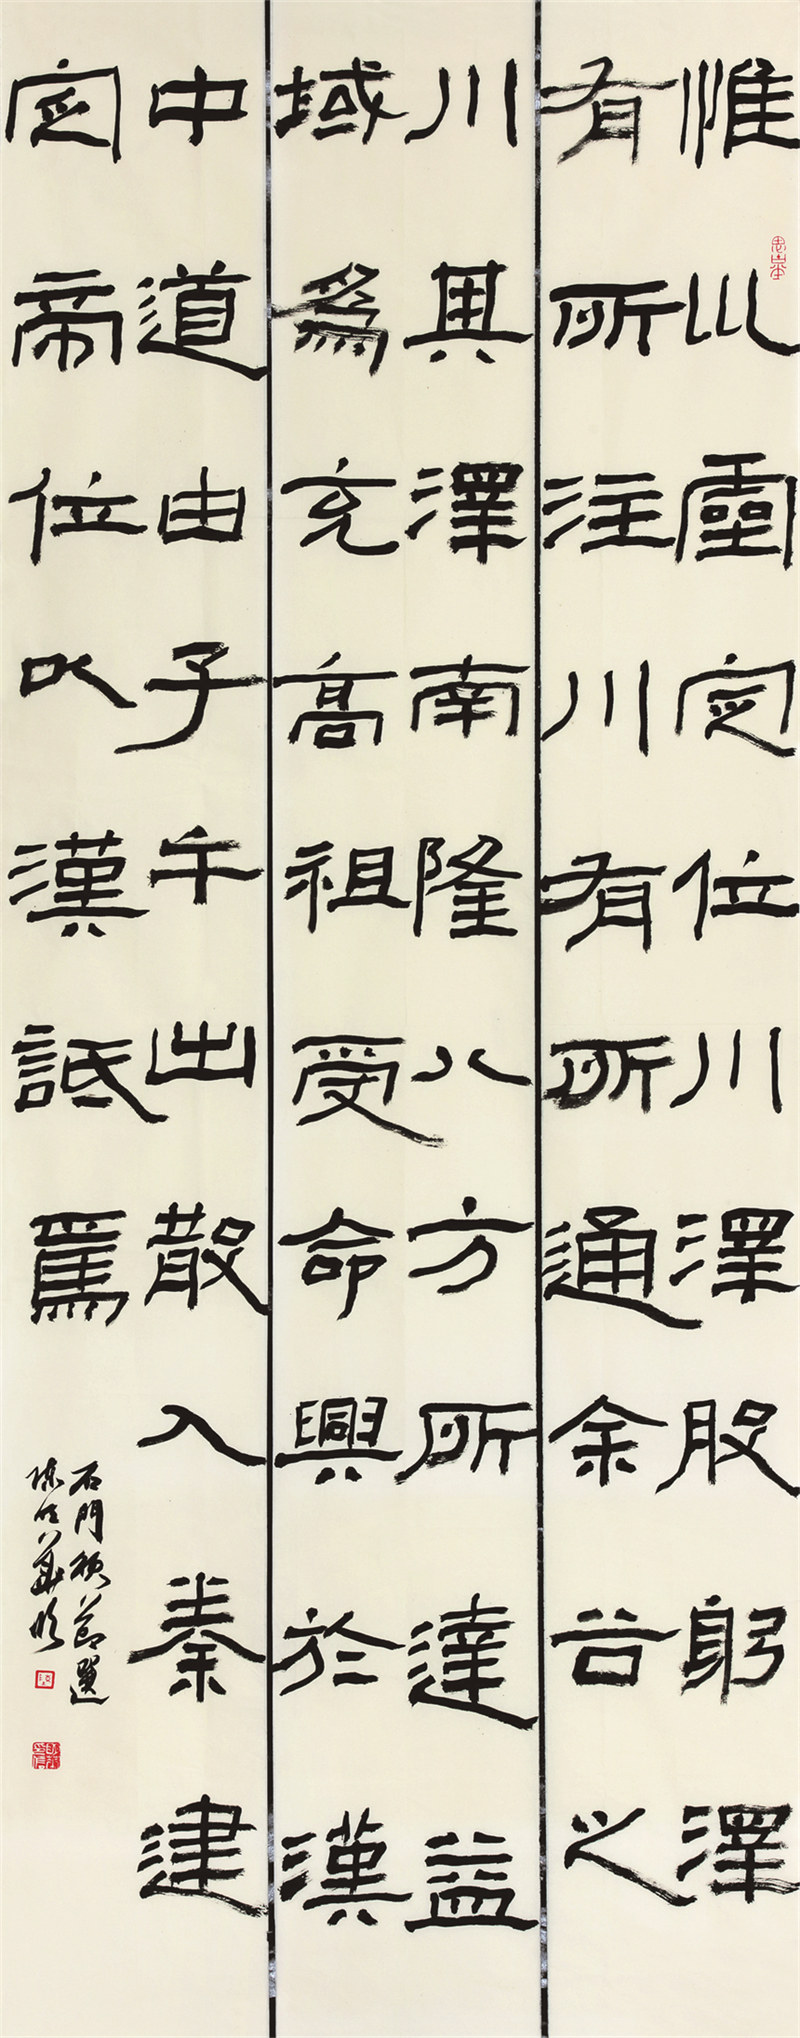 惟巛靈定位川澤股躬澤
有所注川有所通余谷之
川其澤南隆八方所達益
域為充高祖受命興於漢
中道由子午出散入秦建
定帝位以漢詆焉
石門頌節選